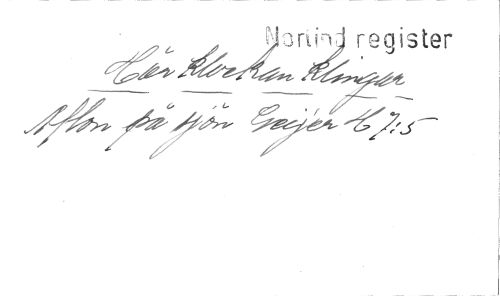 Nortind register
Hör klockan klingar
Afton på sjön Geijer H 7:5